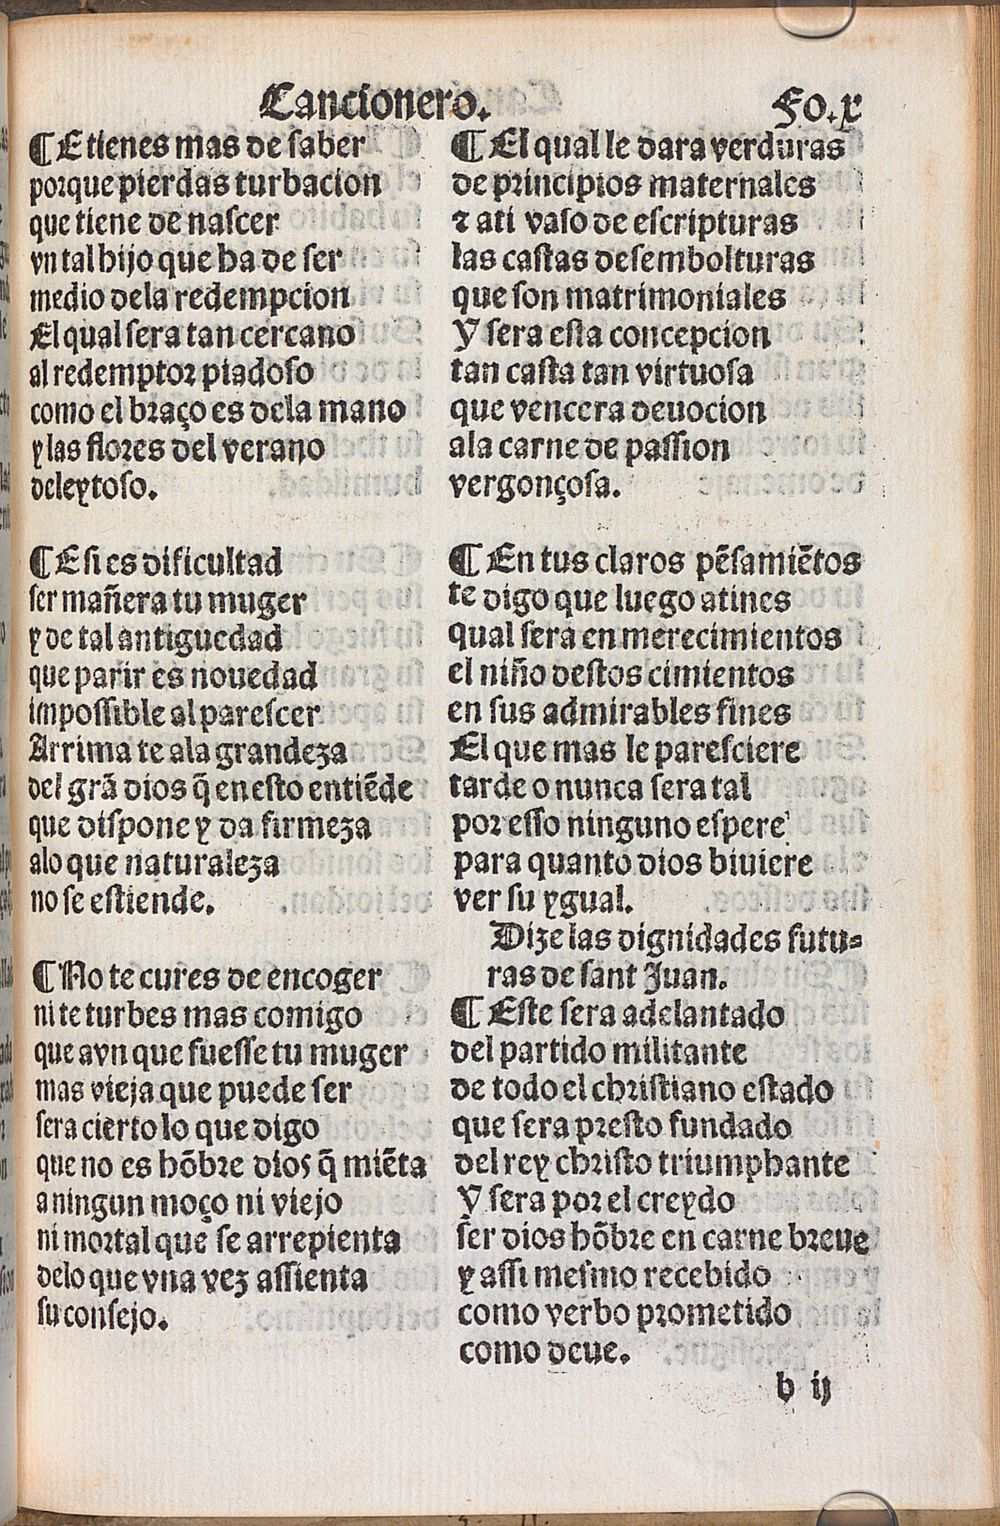 Cancionero. Fo.x
¶ E tienes mas de saber
porque pierdas turbacion
que tiene de nascer
vn tal hijo que ha de ser
medio dela redempcion
El qual sera tan cercano
al redemptor piadoso
como el braço es dela mano
y las flores del verano
deleytoso.
¶ E si es dificultad
ser mañera tu muger
y de tal antiguedad
que parir es nouedad
impossible al parescer
Arrima te ala grandeza
del grã dios q̃ en esto entiẽde
que dispone y da firmeza
alo que naturaleza
no se estiende.
¶ No te cures de encoger
ni te turbes mas comigo
que avn que fuesse tu muger
mas vieja que puede ser
sera cierto lo que digo
que no es hõbre dios q̃ miẽta
a ningun moço ni viejo
ni mortal que se arrepienta
delo que vna vez assienta
su consejo.
¶ El qual le dara verduras
de principios maternales
⁊ ati vaso de escripturas
las castas desembolturas
que son matrimoniales
Y sera esta concepcion
tan casta tan virtuosa
que vencera deuocion
ala carne de passion
vergonçosa.
¶ En tus claros pẽsamiẽtos
te digo que luego atines
qual sera en merecimientos
el niño destos cimientos
en sus admirables fines
El que mas le paresciere
tarde o nunca sera tal
por esso ninguno espere
para quanto dios biuiere
ver su ygual.
Dize las dignidades futu-
ras de sant Juan.
¶ Este sera adelantado
del partido militante
de todo el christiano estado
que sera presto fundado
del rey christo triumphante
Y sera por el creydo
ser dios hõbre en carne breue
y assi mesmo recebido
como verbo prometido
como deue.
b ij